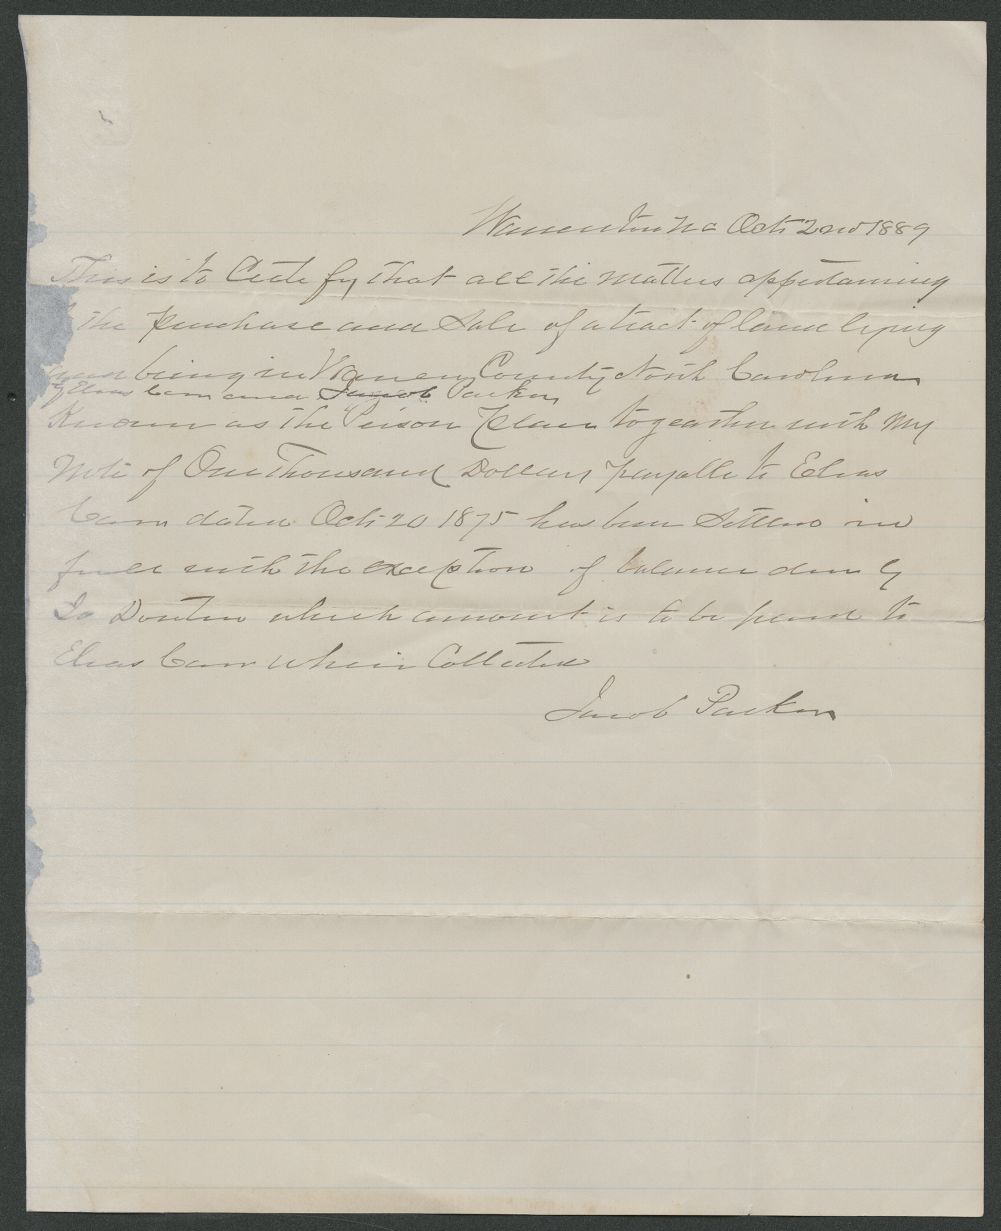 Warrenton Nc Oct 2nd 1889
This is to Certefy that all the matters appertaining
the purchase and Sale of a tract of land lying
and being in Warren County North Carolina
by Elias Carr and Jacob Parker
Known as the Place togeather with My
Note of One Thousand Dollars payable to Elias
Carr dated Oct 20 1875 has been Settled in
full with the exception of balance due by
which amount is to be paid to
Elias Carr when Collected
Jacob Parker